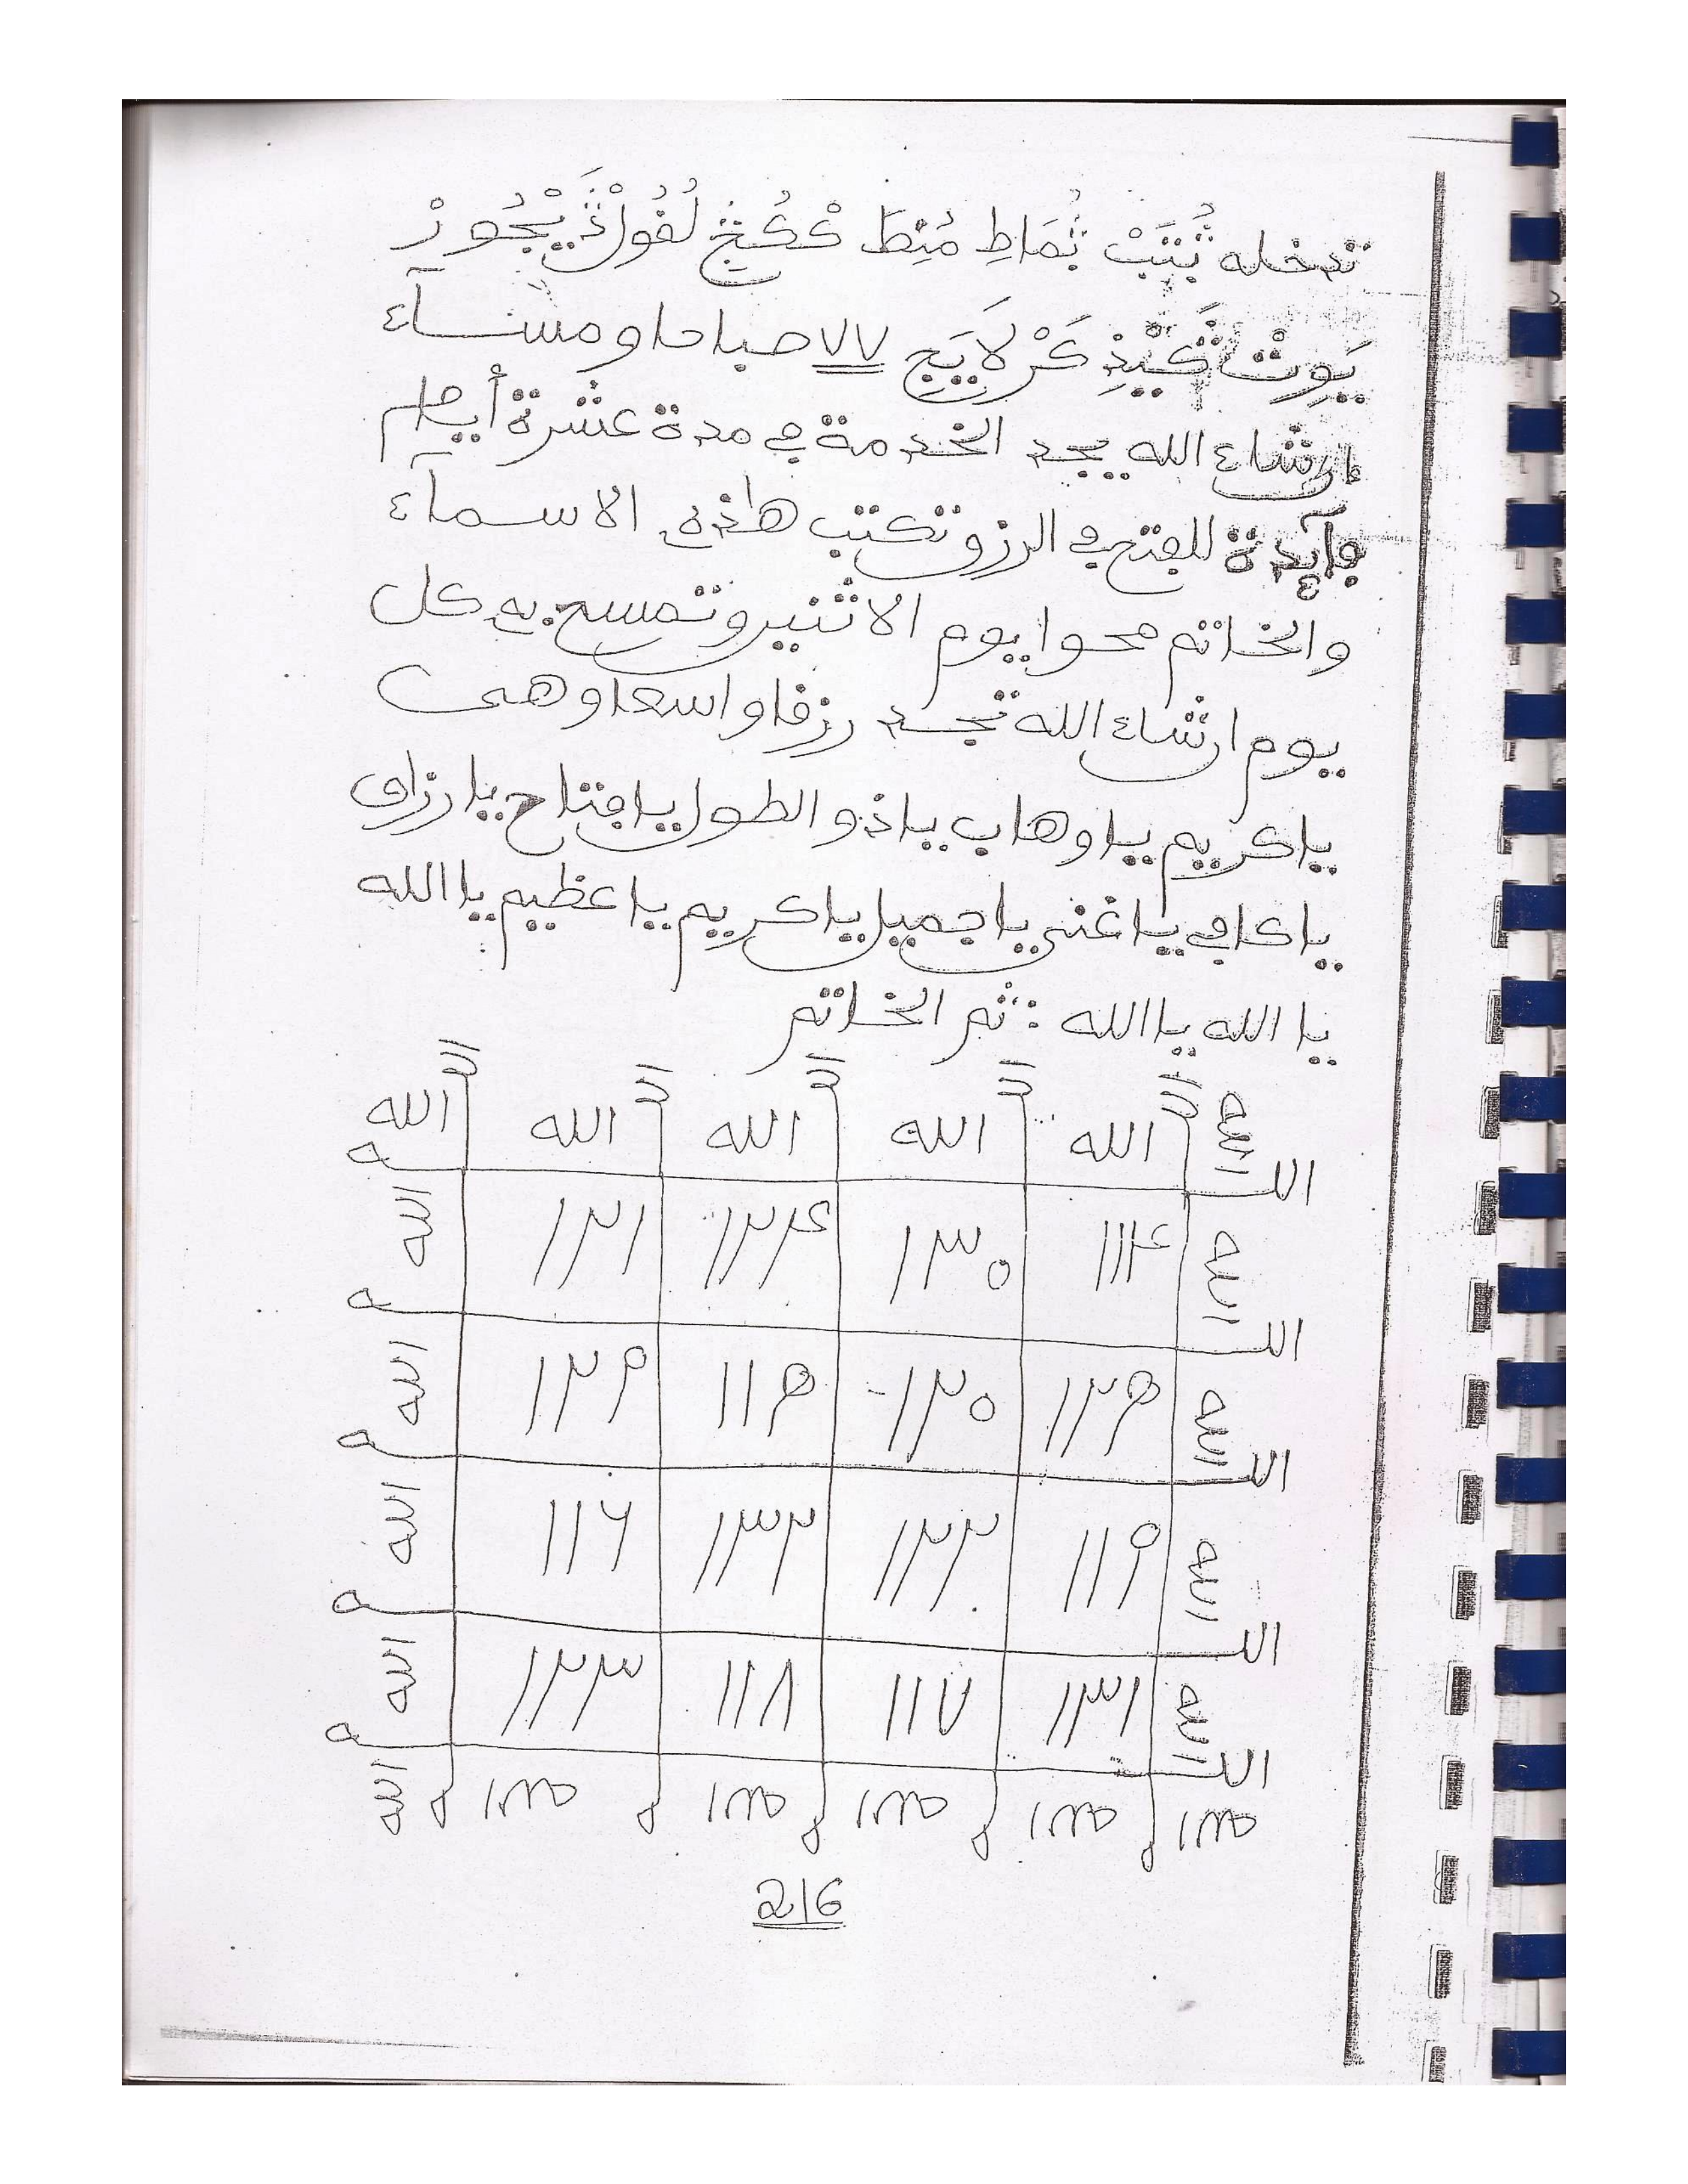 تدخله ثُبَتَبْ ثُمَاطِ مُنِطَ كْكُجْ لُفُولْ يْجُورْ
يَوِتْ كَيْنِذِ كَرْ لَا يَيَجِ ٧٧ صباحا ومسآء
إن شاء الله يجد الخدمة في مدة عشرة أيام
فآيدة للفتح في الرزق تكتب هذه الاسمآء
والخاتم محوا يوم الاثنين وتمسح به كل
يوم ان شاء الله تجد رزقا واسعا وهى
يا كريم يا وهاب يا ذو الطول يا فتاح يا رزاق
يا كافي يا غني يا جميل يا كريم يا عظيم يا الله
يا الله يا الله ثم الخاتم
الله الله الله الله الله الله
الله ١١٤ ١٣٠ ١٢٤ ١٢١ الله
الله ١٢٥ ١٢٠ ١١٥ ١٢٩ الله
الله ١١٩ ١٢٢ ١٣٢ ١١٦ الله
الله ١٣١ ١١٧ ١١٨ ١٢٣ الله
الله
216